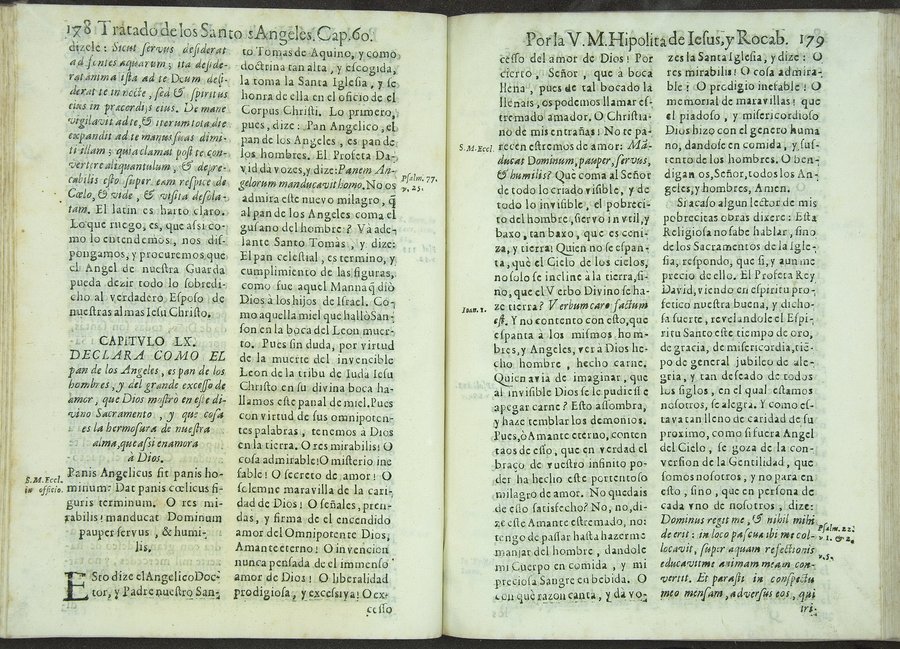 178 Tratado de los Santos Angeles. Cap. 60.
dizele: Sicut servus desiderat
ad fontes aquarum; ita deside-
rat anima ista ad te Deum desi-
derat te in nocte, sed & spiritus
eius in præcordijs eius. De mane
vigilavit ad te, & iterum tota die
expandit ad te manus suas dimi-
ti illam; quia clamat post te con-
vertere aliquantulum, & depre-
cabilis esto super eam respice de
Cœlo, & vide, & visita desola-
tam. El latin es harto claro.
Lo que ruego, es, que assi co-
mo lo entendemos, nos dis-
pongamos, y procuremos que
el Angel de nuestra Guarda
pueda dezir todo lo sobredi-
cho al verdadero Esposo de
nuestras almas Iesu Christo.
CAPITVLO LX.
DECLARA COMO EL
pan de los Angeles, es pan de los
hombres, y del grande excesso de
amor, que Dios mostrò en este di-
vino Sacramento, y que cosa
es la hermosura de nuestra
alma, que assi enamora
à Dios.
S. M. Eccl.
in officio.
Panis Angelicus fit panis ho-
minum: Dat panis cœlicus fi-
guris terminum. O res mi-
rabilis! manducat Dominum
pauper servus, & humi-
lis,
Esto dize el Angelico Doc-
tor, y Padre nuestro San-
to Tomas de Aquino, y como
doctrina tan alta, y escogida,
la toma la Santa Iglesia, y se
honra de ella en el oficio de el
Corpus Christi. Lo primero,
pues, dize: Pan Angelico, el
pan de los Angeles, es pan de
los hombres. El Profeta Da-
vid da vozes, y dize: Panem An-
gelorum manducavit homo. No os
Psalm. 77.
v. 25.
admira este nuevo milagro, q̃
al pan de los Angeles coma el
gusano del hombre? Và ade-
lante Santo Tomàs, y dize:
El pan celestial, es termino, y
cumplimiento de las figuras,
como fue aquel Mannà q̃ diò
Dios à los hijos de Israel. Co-
mo aquella miel que hallò San-
son en la boca del Leon muer-
to. Pues sin duda, por virtud
de la muerte del invencible
Leon de la tribu de Iuda Iesu
Christo en su divina boca ha-
llamos este panal de miel. Pues
con virtud de sus omnipoten-
tes palabras, tenemos à Dios
en la tierra. O res mirabilis! O
cosa admirable! O misterio ine
fable! O secreto de amor! O
solemne maravilla de la cari-
dad de Dios! O señales, pren-
das, y firma de el encendido
amor del Omnipotente Dios,
Amante eterno! O invencion
nunca pensada de el immenso
amor de Dios! O liberalidad
prodigiosa, y excessiva! O ex-
cesso
Por la V. M. Hipolita de Iesus, y Rocab. 179
cesso del amor de Dios! Por
cierto, Señor, que à boca
llena, pues de tal bocado la
llenais, os podemos llamar es-
tremado amador. O Christia-
no de mis entrañas! No te pa-
S. M. Eccl.
recen estremos de amor: Mã-
ducat Dominum, pauper, servus,
& humilis? Que coma al Señor
de todo lo criado visible, y de
todo lo invisible, el pobreci-
to del hombre, servo inutil, y
baxo, tan baxo, que es ceni-
za, y tierra! Quien no se espan-
ta, què el Cielo de los cielos,
no solo se incline à la tierra, si-
no, que el Verbo Divino se ha-
ze tierra? Verbum caro factum
Ioan. 1.
est. Y no contento con esto, que
espanta à los mismos hom-
bres, y Angeles, ver à Dios he-
cho hombre, hecho carne.
Quien avia de imaginar, que
al invisible Dios se le pudiesse
apegar carne? Esto assombra,
y haze temblar los demonios.
Pues, ò Amante eterno, conten
taos de esso, que en verdad el
braço de vuestro infinito po-
der ha hecho este portentoso
milagro de amor. No quedais
de esso satisfecho? No, no, di-
ze este Amante estremado, no:
tengo de passar hasta hazerme
manjar del hombre, dandole
mi Cuerpo en comida, y mi
preciosa Sangre en bebida. O
con què razon canta, y da vo-
zes la Santa Iglesia, y dize: O
res mirabilis! O cosa admira-
ble! O prodigio inefable! O
memorial de maravillas! que
el piadoso, y misericordioso
Dios hizo con el genero huma
no, dandose en comida, y sus-
tento de los hombres. O ben-
digan os, Señor, todos los An-
geles, y hombres, Amen.
Si acaso algun lector de mis
pobrecitas obras dixere: Esta
Religiosa no sabe hablar, sino
de los Sacramentos de la Igle-
sia, respondo, que si, y aun me
precio de ello. El Profeta Rey
David, viendo en espiritu pro-
fetico nuestra buena, y dicho-
sa suerte, revelandole el Espi-
ritu Santo este tiempo de oro,
de gracia, de misericordia, tiẽ-
po de general jubileo de ale-
gria, y tan deseado de todos
los siglos, en el qual estamos
nosotros, se alegra. Y como es-
tava tan lleno de caridad de su
proximo, como si fuera Angel
del Cielo, se goza de la con-
version de la Gentilidad, que
somos nosotros, y no para en
esto, sino, que en persona de
cada vno de nosotros, dize:
Dominus regit me, & nihil mihi
Psalm. 22.
v. 1. & 2.
deerit: in loco pascuæ ibi me col-
locavit, super aquam refectionis
v. 5.
educavit me animam meam con-
vertit. Et parasti in conspectu
meo mensam, adversus eos, qui
tri-